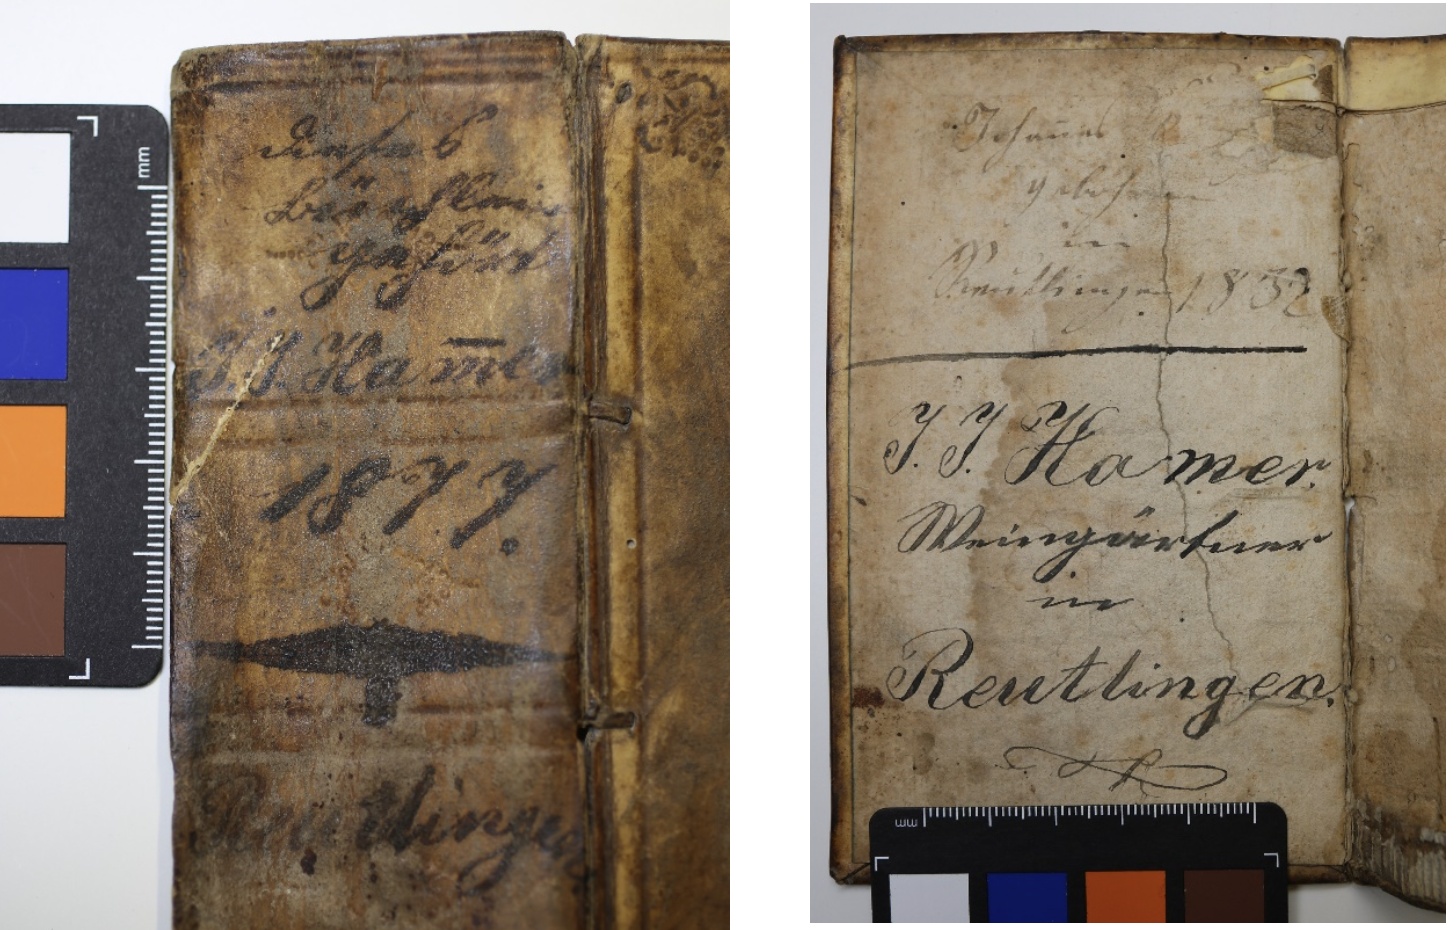 dieses
Büchlein
gehört
J. J. Ham̅er
1877.
Reutlingen
mm
Johannes
gebohren
in
Reutlingen 1832
J. J. Hamer.
Weingärtner
in
Reutlingen.
mm